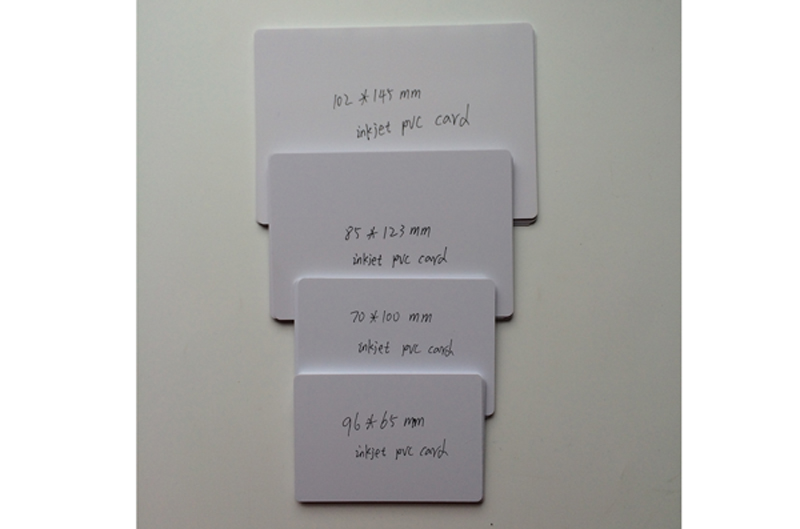 102 * 145 mm
inkjet pvc card
85 * 123 mm
inkjet pvc card
70 * 100 mm
inkjet pvc card
96 * 65 mm
inkjet pvc card